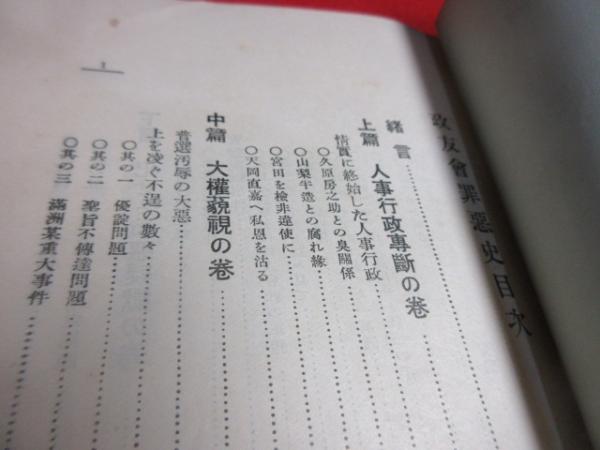 政友會罪惡史目次
緒言
上篇 人事行政專斷の卷
情實に終始した人事行政
〇久原房之助との臭關係
〇山梨半造との腐れ緣
〇宮田を檢非違使に
〇天岡直嘉へ私恩を沽る
中篇 大權藐視の卷
普選汚辱の大惡
上を凌ぐ不逞の數々
〇其の一 優諚問題
〇其の二 聖旨不傳達問題
〇其の三 滿洲某重大事件
1